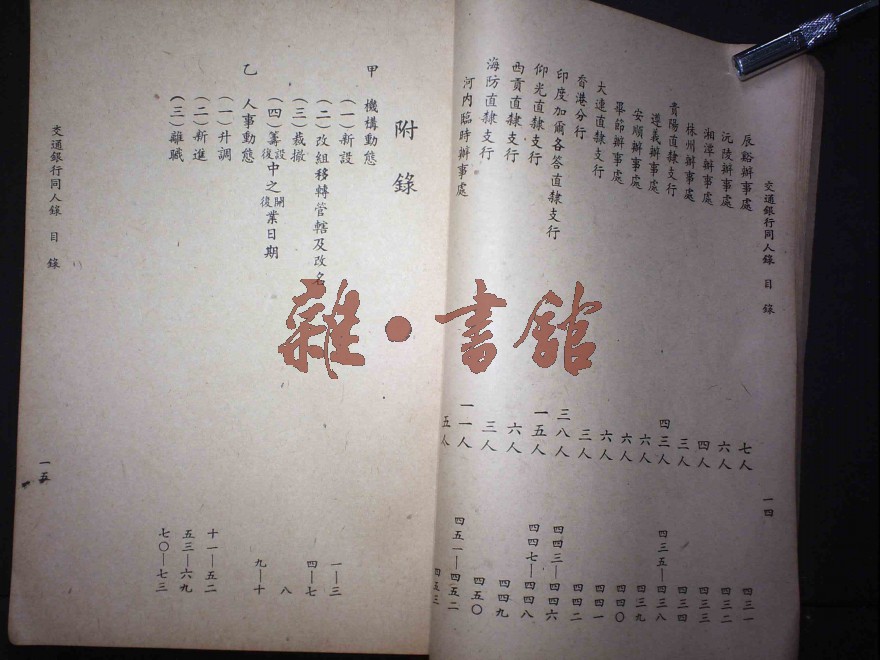 交通銀行同人錄 目錄 一四
辰谿辦事處 七人 四三一
沅陵辦事處 六人 四三二
湘潭辦事處 四人 四三三
株州辦事處 三人 四三四
貴陽直隸支行 四三人 四三五—四三八
遵義辦事處 六人 四三九
安順辦事處 六人 四四〇
畢節辦事處 六人 四四一
大連直隸支行 三人 四四二
香港分行 三八人 四四三—四四六
印度加爾各答直隸支行 一五人 四四七—四四八
仰光直隸支行 六人 四四九
西貢直隸支行 三人 四五〇
海防直隸支行 一一人 四五一—四五二
河內臨時辦事處 五人 四五三
附錄
甲 機構動態
(一)新設 一—三
(二)改組移轉管轄及改名 四—七
(三)裁撤 八
(四)籌設復中之開復業日期 九—十
乙 人事動態
(一)升調 十一—五二
(二)新進 五三—六九
(三)離職 七〇—七三
交通銀行同人錄 目錄 一五
雜·書館